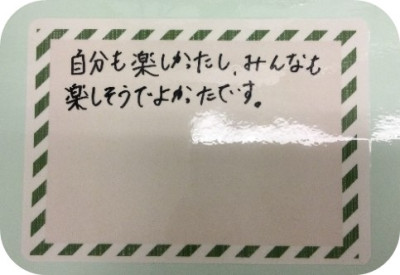 自分も楽しかたし、みんなも
楽しそうでよかたです。